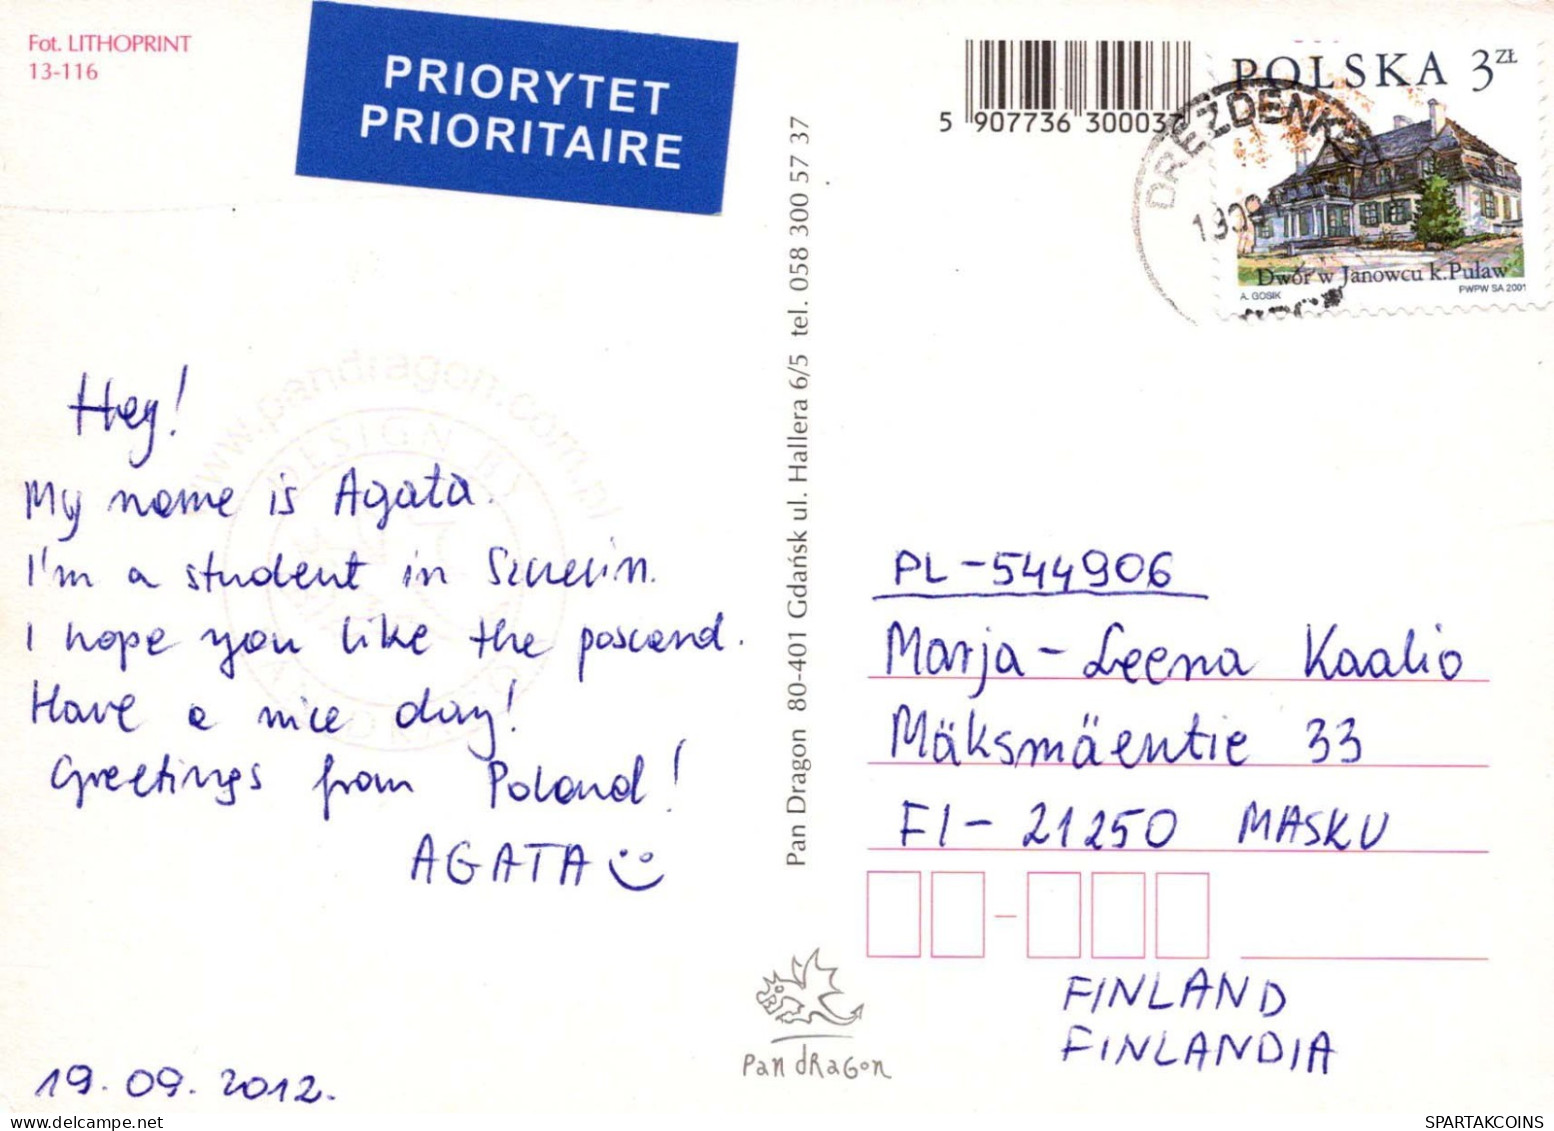 Fot. LITHOPRINT
13-116
PRIORYTET
PRIORITAIRE
5 907736 300037
POLSKA 3 ZŁ
DREZDENKO
Dwór w Janowcu k.Puław
A. GOSIK
PWPW SA 2001
www.pandragon.com.pl
DESIGN BY
Hey!
My name is Agata.
I'm a student in Szczecin.
I hope you like the poscard.
Have a nice day!
Greetings from Poland!
AGATA
19.09.2012.
Pan Dragon 80-401 Gdańsk ul. Hallera 6/5 tel. 058 300 57 37
PL-544906
Marja-Leena Kaalio
Mäksmäentie 33
FI-21250 MASKU
FINLAND
FINLANDIA
pan dRaGon
SPARTAKCOINS